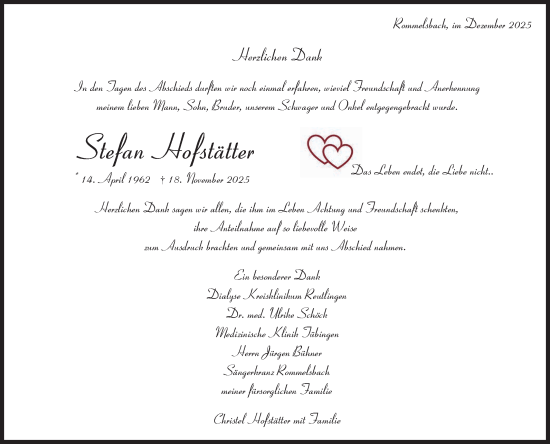 Rommelsbach, im Dezember 2025
Herzlichen Dank
In den Tagen des Abschieds durften wir noch einmal erfahren, wieviel Freundschaft und Anerkennung
meinem lieben Mann, Sohn, Bruder, unserem Schwager und Onkel entgegengebracht wurde.
Stefan Hofstätter
* 14. April 1962 † 18. November 2025
Das Leben endet, die Liebe nicht..
Herzlichen Dank sagen wir allen, die ihm im Leben Achtung und Freundschaft schenkten,
ihre Anteilnahme auf so liebevolle Weise
zum Ausdruck brachten und gemeinsam mit uns Abschied nahmen.
Ein besonderer Dank
Dialyse Kreisklinikum Reutlingen
Dr. med. Ulrike Schöck
Medizinische Klinik Tübingen
Herrn Jürgen Bühner
Sängerkranz Rommelsbach
meiner fürsorglichen Familie
Christel Hofstätter mit Familie